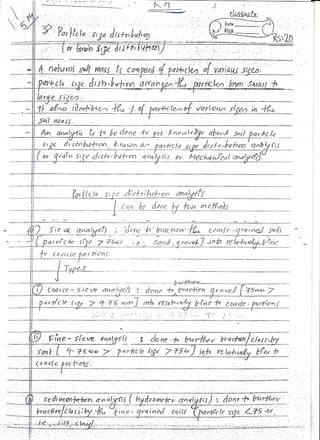 classmate
Date
Page
Rs:20
Particle size distribution
(or Grain size distribution)
- A natural soil mass is composed of particles of various sizes.
- particle size distribution arranges the particles from small to
large sizes.
- It also identifies the % of particles of various sizes in the
soil mass.
- An analysis is to be done to get knowledge about soil particle
size distribution, known as particle size distribution analysis
(or grain size distribution analysis or Mechanical analysis).
Particle size distribution analysis
can be done by two methods
Sieve analysis : done to fraction the coarse-grained soils
[particle size > 75u i.e; sand, gravel] into relatively fine
to coarse portions
Types
(i) Coarse-sieve analysis : done to further fraction gravel [75mm >
particle size > 4.75 mm] into relatively fine to coarse-portions
(ii) Fine-sieve analysis : done to further fraction/classify
sand [4.75mm > particle size > 75u] into relatively fine to
coarse portions.
sedimentation analysis (hydrometer analysis) : done to further
fraction/classify the fine-grained soils (particle size <75 u
i.e, silt, clay)